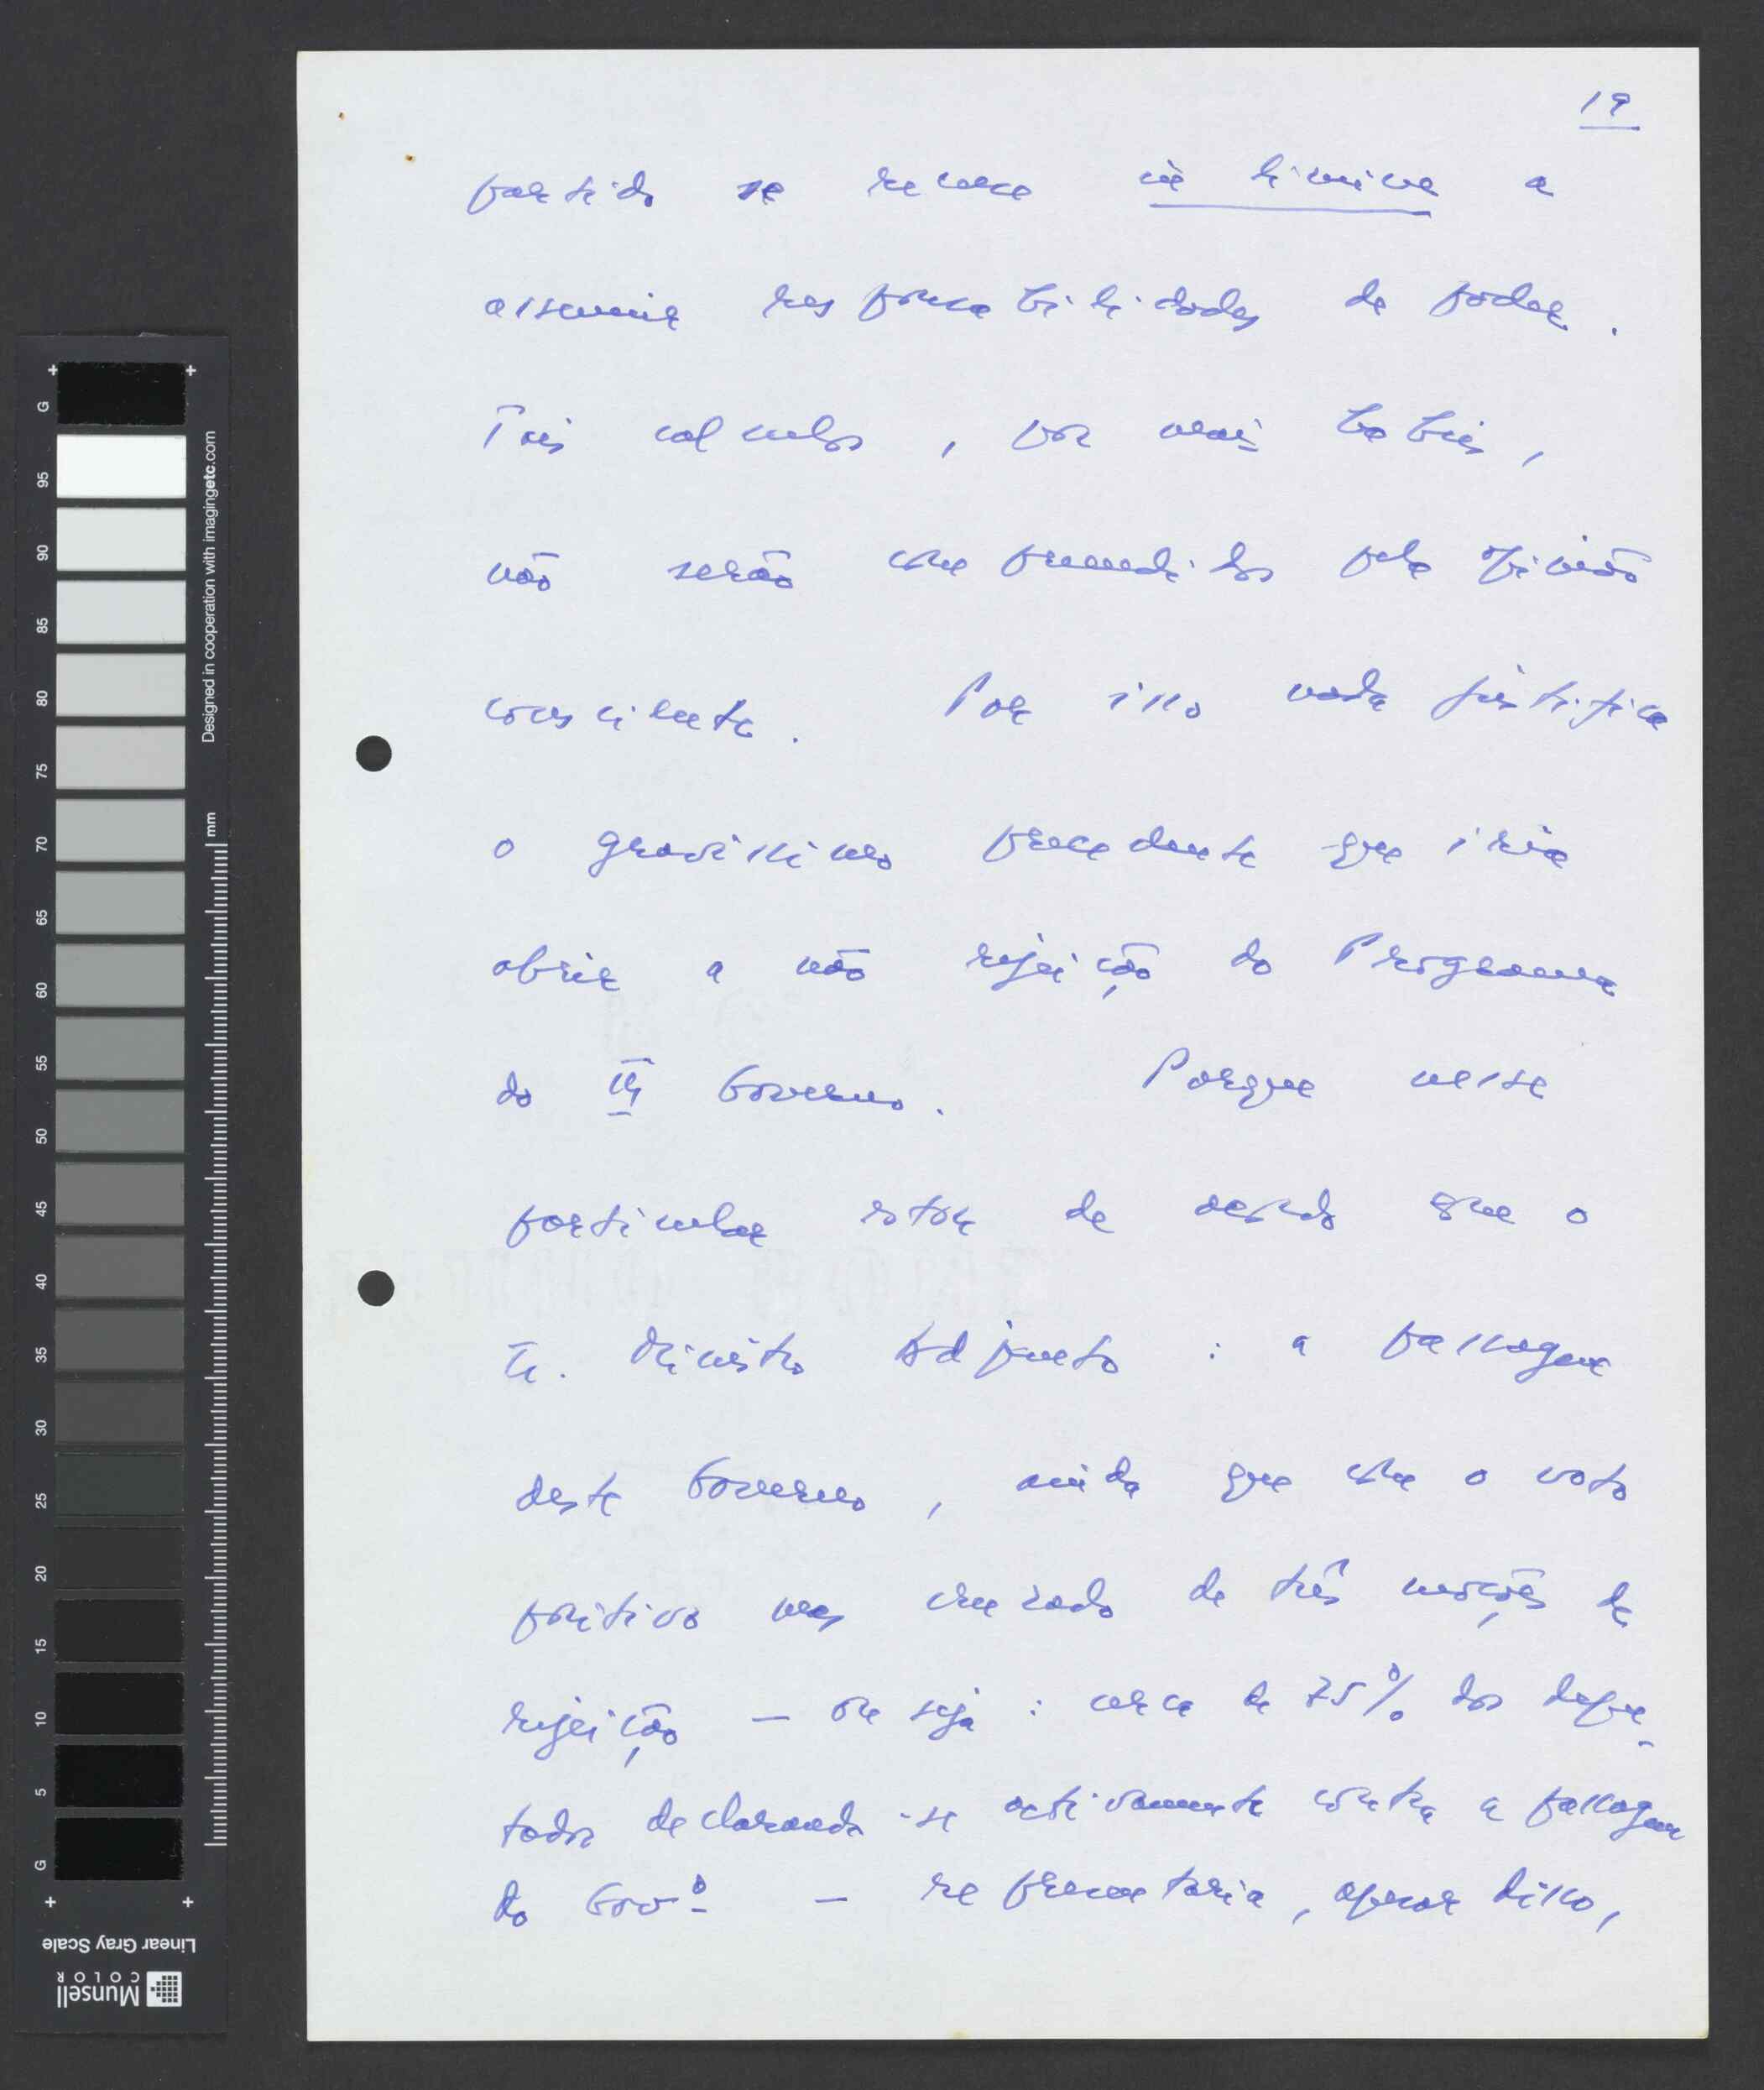 19
partido se recuse in limine a
assumir responsabilidades de poder.
Tais cálculos, por mais hábeis,
não serão compreendidos pela opinião
consciente. Por isso nada justifica
o gravíssimo precedente que iria
abrir a não rejeição do Programa
do III Governo. Porque nesse
particular estou de acordo com o
Sr. Ministro Adjunto: a passagem
deste Governo, ainda que com o voto
positivo mas cruzado de três moções de
rejeição — ou seja: cerca de 75% dos depu-
tados declarando-se activamente contra a passagem
do Govº — representaria, apesar disso,
G
95
90
85
80
75
70
65
60
55
50
45
40
35
30
25
20
15
10
5
G
Designed in cooperation with imagingetc.com
mm
Linear Gray Scale
Munsell
COLOR